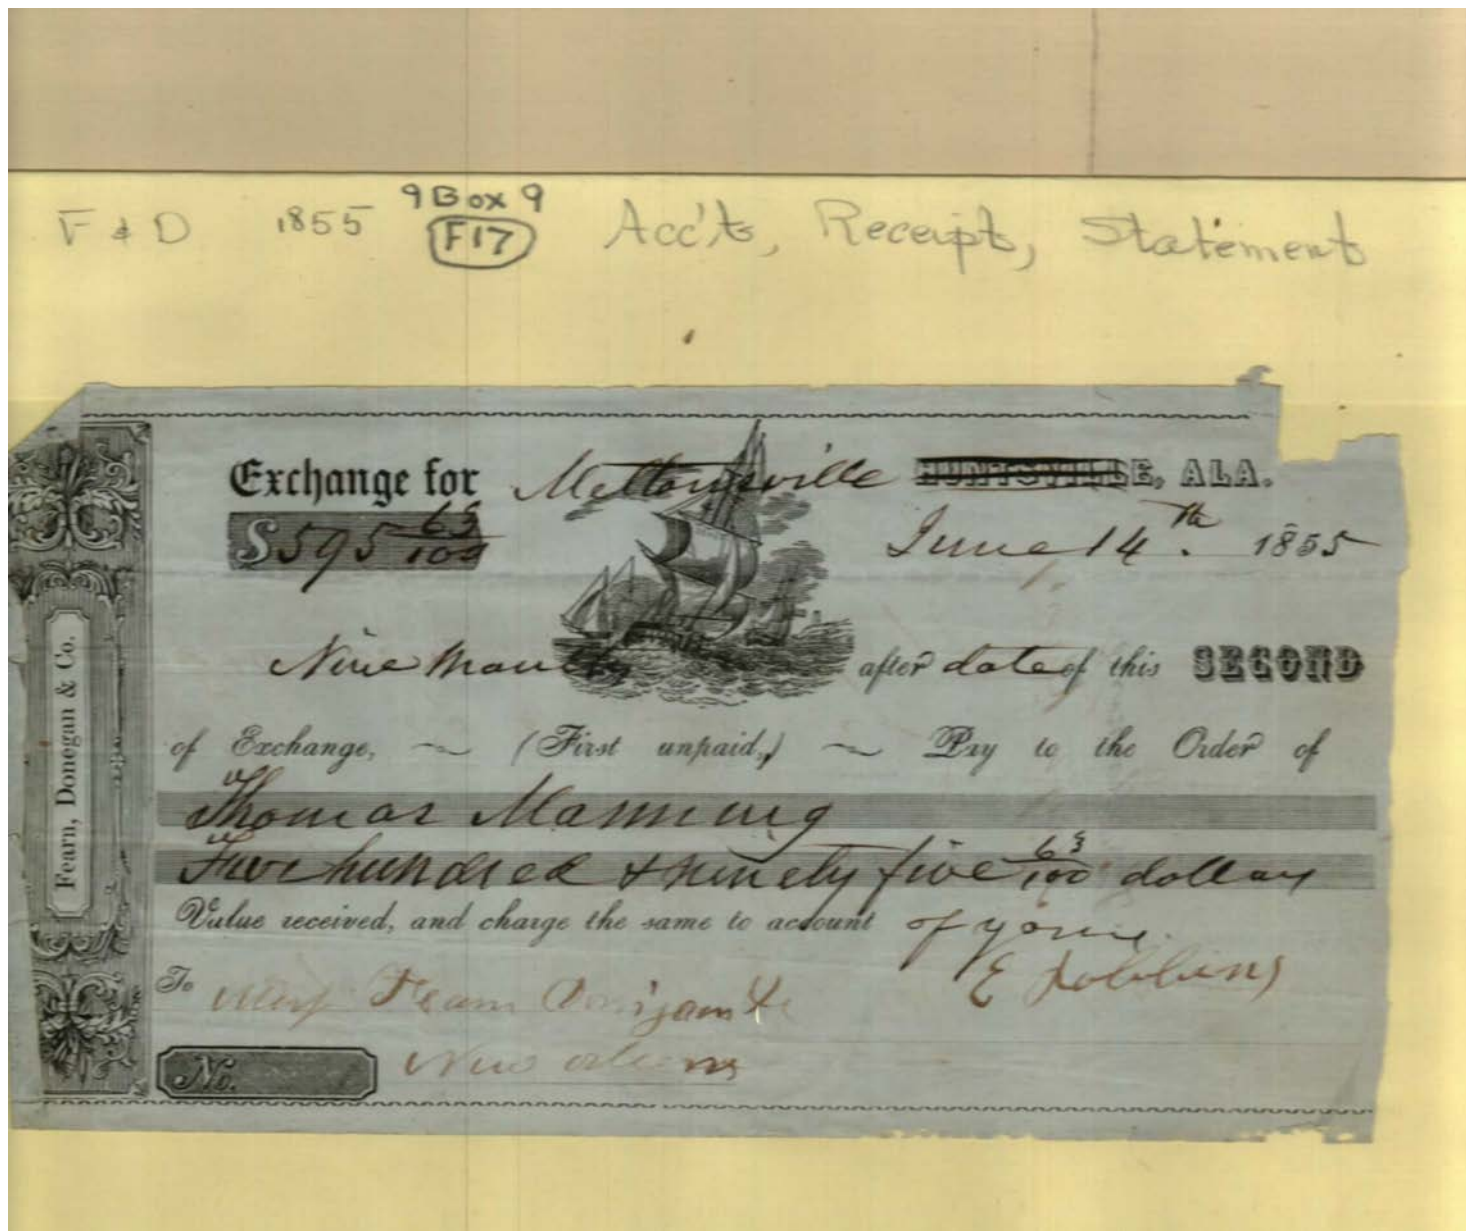 F & D 1855 9 Box 9 Acc'ts, Receipt, Statement
F17
Exchange for Mettonsville HUNTSVILLE, ALA.
$595 63/100 June 14th. 1855
Nine Months after date of this SECOND
of Exchange, (First unpaid,) Pay to the Order of
Thomas Manning
Five hundred & ninety five 63/100 dollars
Value received, and charge the same to account of yours
To E Dobbins
New Orleans
No.
Fearn, Donegan & Co.